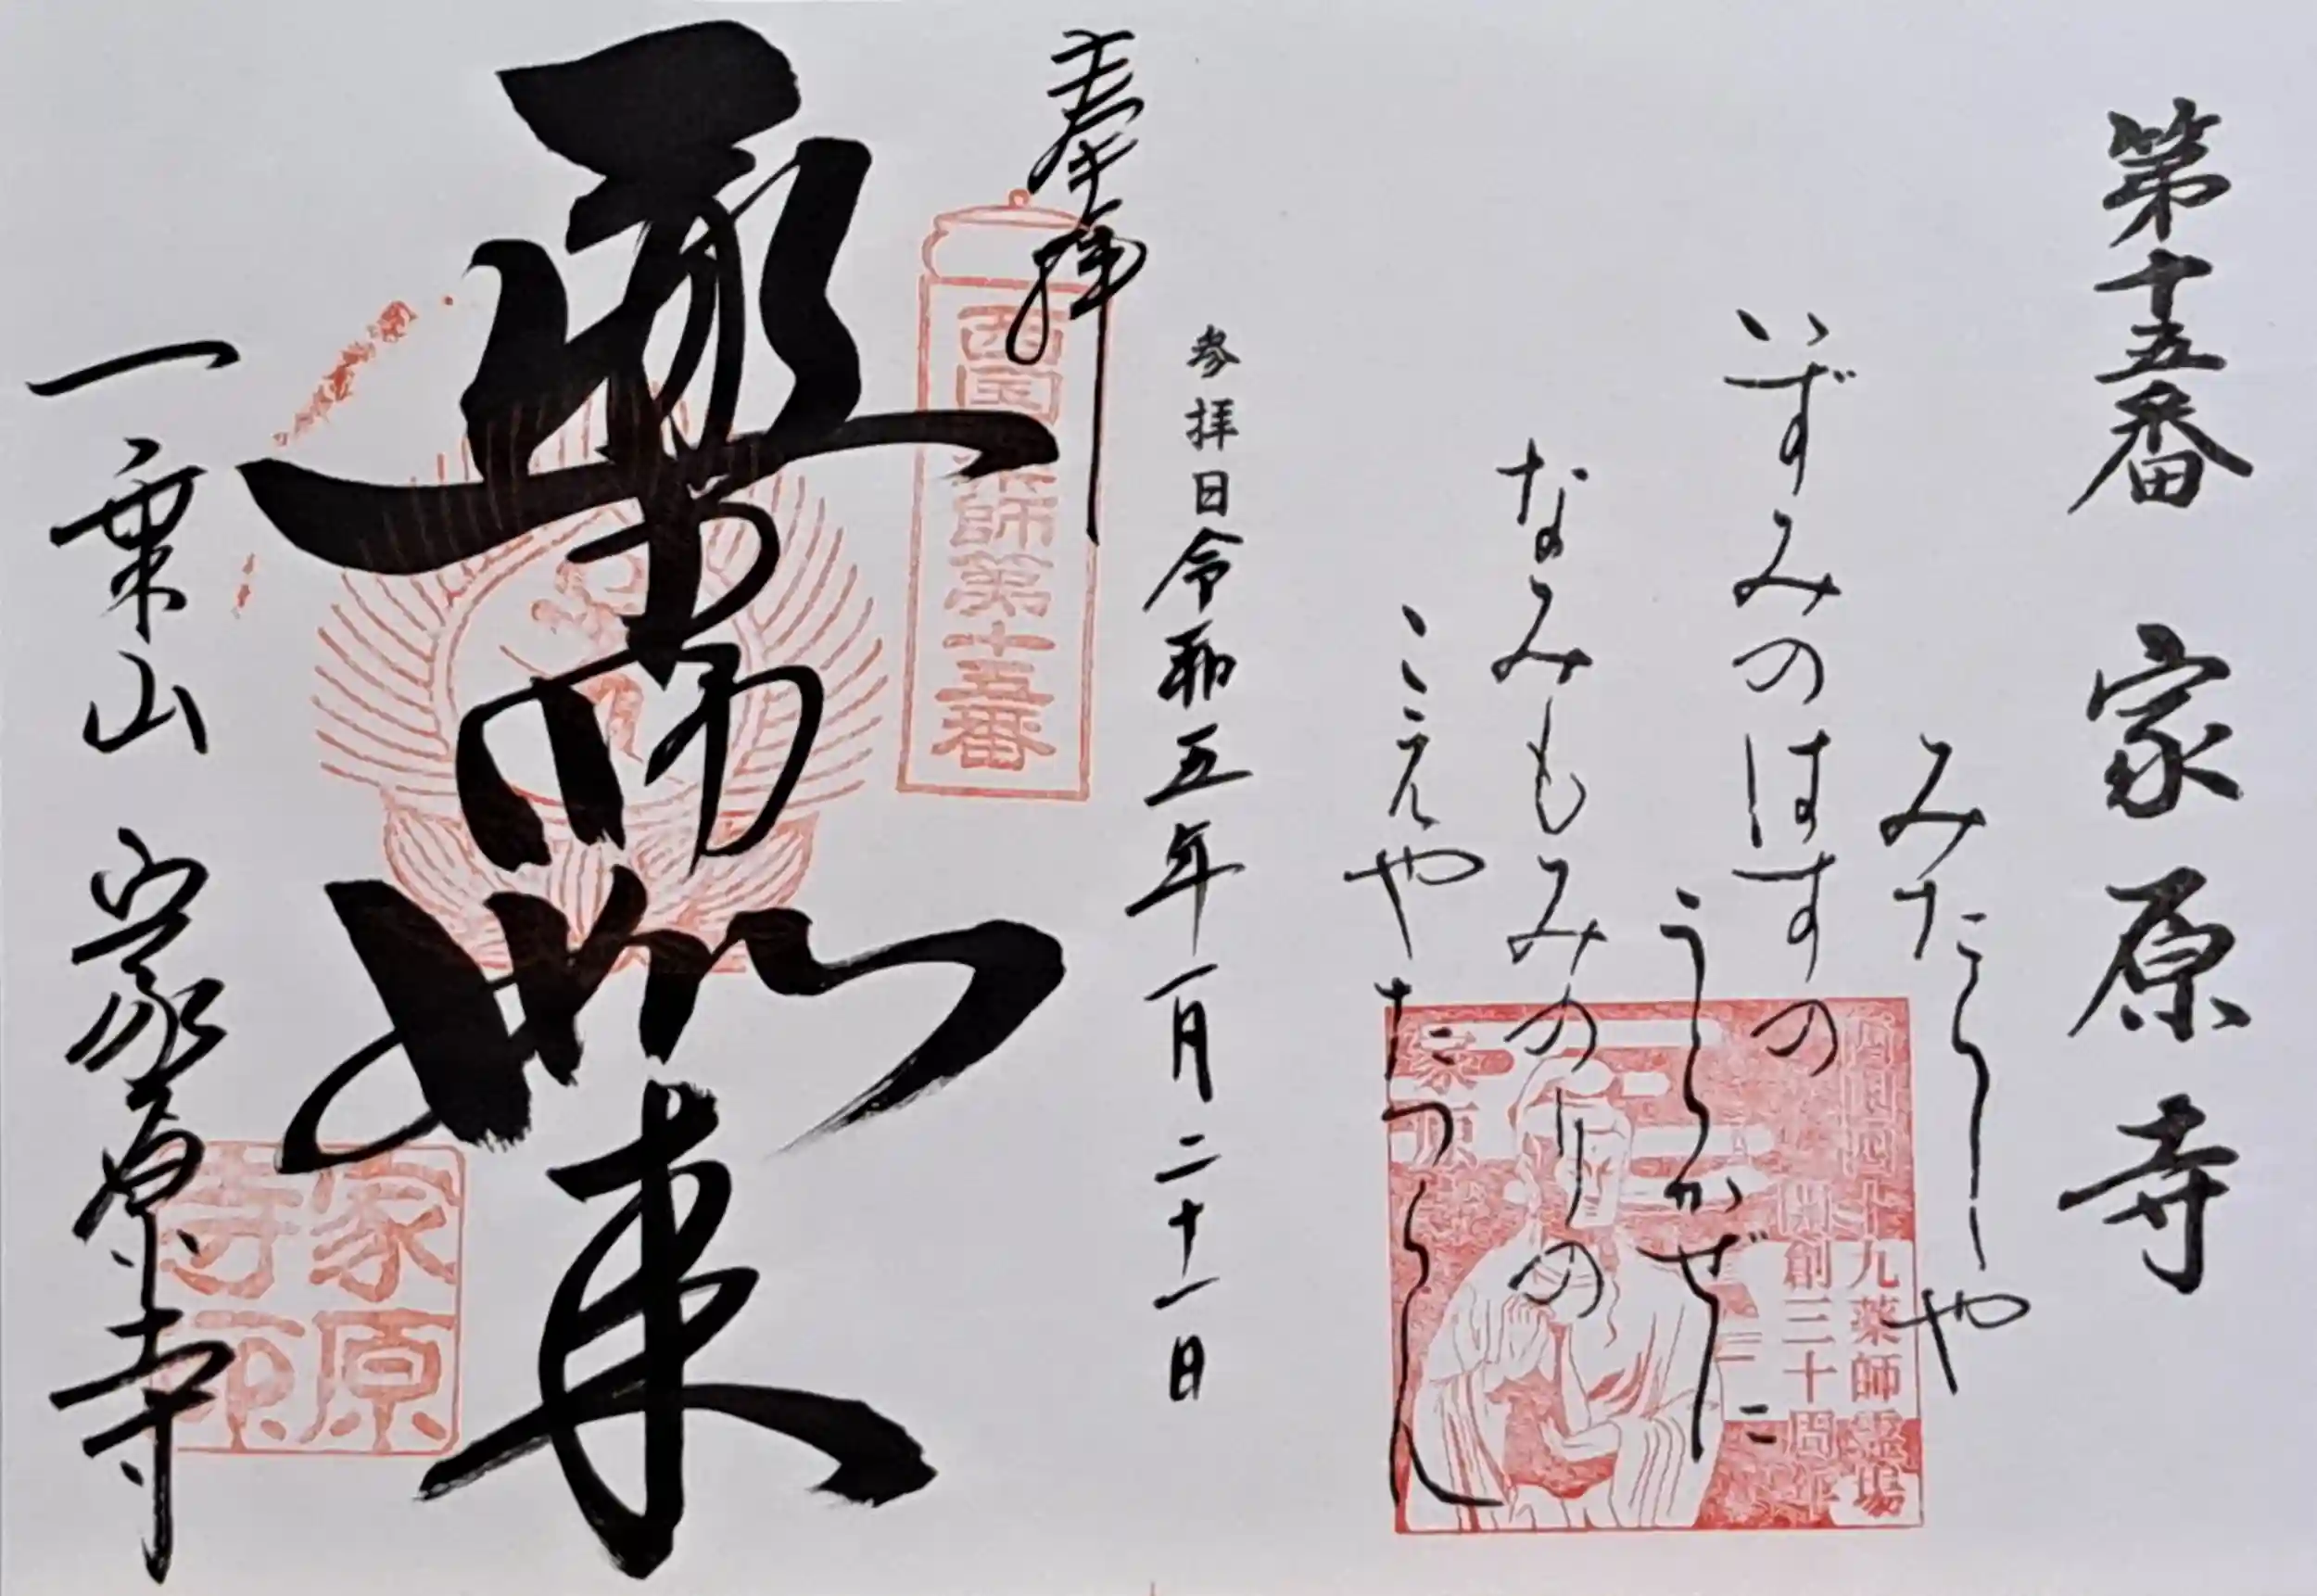 第十五番 家原寺
みたらしや
いずみのはすの
うらかぜに
なみもみのりの
こえやたつらん
参拝日令和五年一月二十一日
奉拝
薬師如来
一乗山 家原寺
西国薬師第十五番
家原寺印
西国四十九薬師霊場
開創三十周年
家原寺